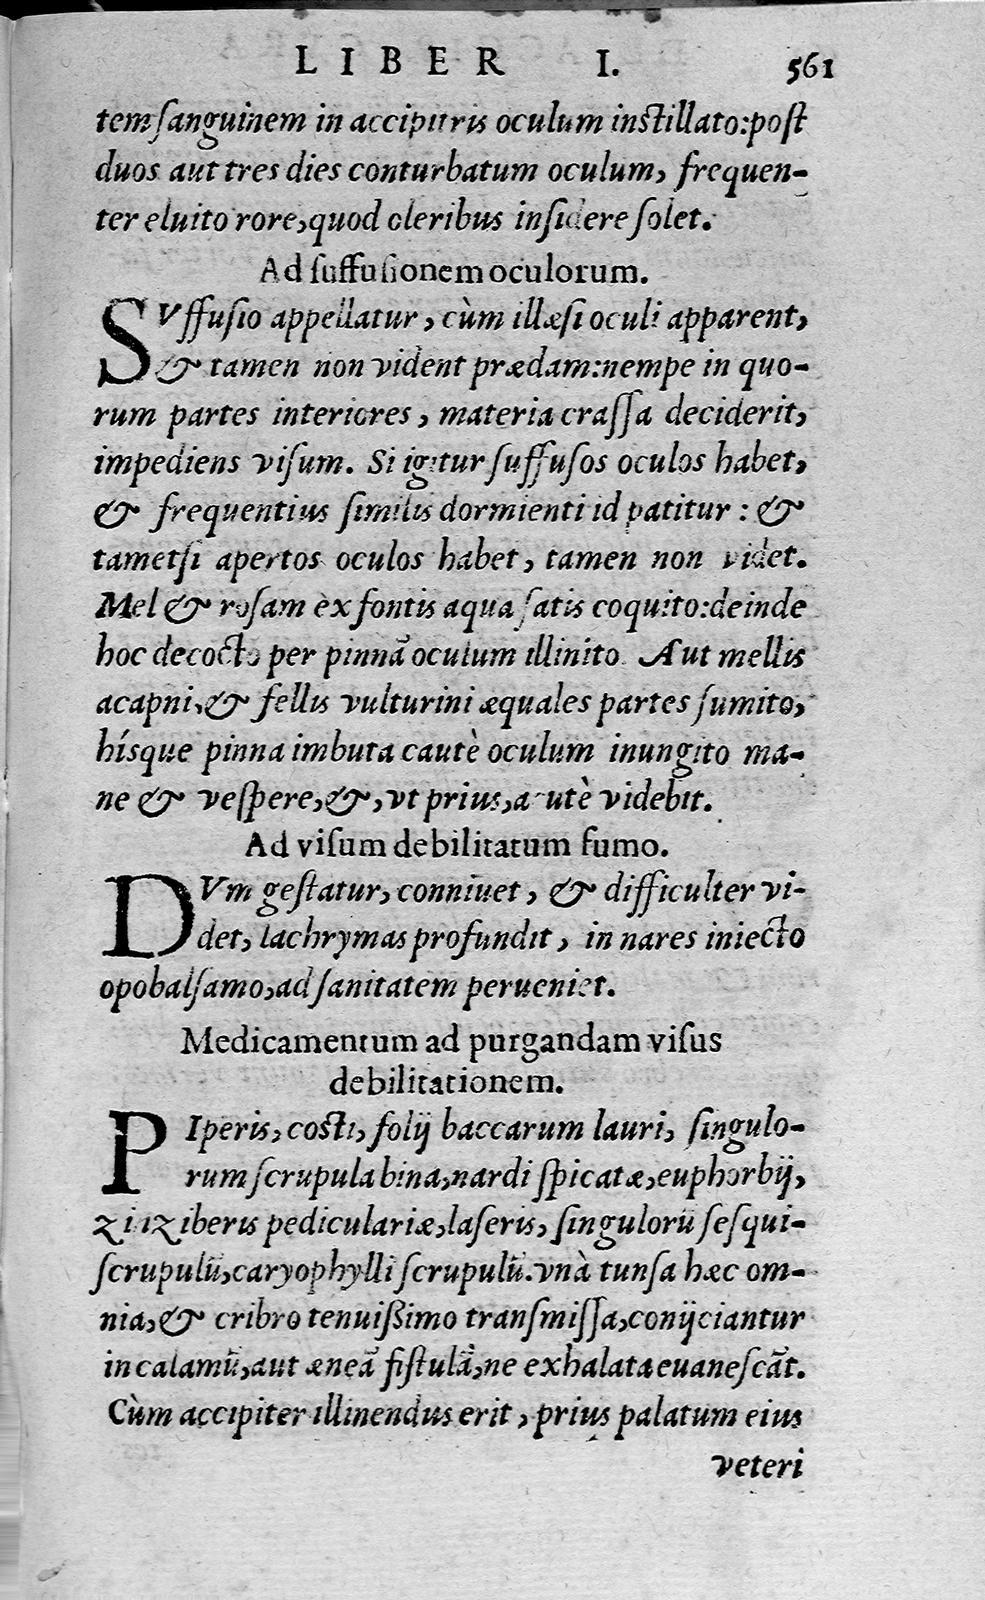 LIBER I. 561
tem sanguinem in accipitris oculum instillato: post
duos aut tres dies conturbatum oculum, frequen-
ter eluito rore, quod oleribus insidere solet.
Ad suffusionem oculorum.
SVffusio appellatur, cùm illæsi oculi apparent,
& tamen non vident prædam: nempe in quo-
rum partes interiores, materia crassa deciderit,
impediens visum. Si igitur suffusos oculos habet,
& frequentius similis dormienti id patitur: &
tametsi apertos oculos habet, tamen non videt.
Mel & rosam ex fontis aqua satis coquito: deinde
hoc decocto per pinnā oculum illinito. Aut mellis
acapni, & fellis vulturini æquales partes sumito,
hísque pinna imbuta cautè oculum inungito ma-
ne & vespere, &, vt prius, acutè videbit.
Ad visum debilitatum fumo.
DVm gestatur, conniuet, & difficulter vi-
det, lachrymas profundit, in nares iniecto
opobalsamo, ad sanitatem perueniet.
Medicamentum ad purgandam visus
debilitationem.
PIperis, costi, folij baccarum lauri, singulo-
rum scrupula bina, nardi spicatæ, euphorbij,
zinziberis pediculariæ, laseris, singulorū sesqui-
scrupulū, caryophylli scrupulū. vnà tunsa hæc om-
nia, & cribro tenuißimo transmissa, conijciantur
in calamū, aut æneā fistulā, ne exhalata euanescāt.
Cùm accipiter illinendus erit, prius palatum eius
veteri